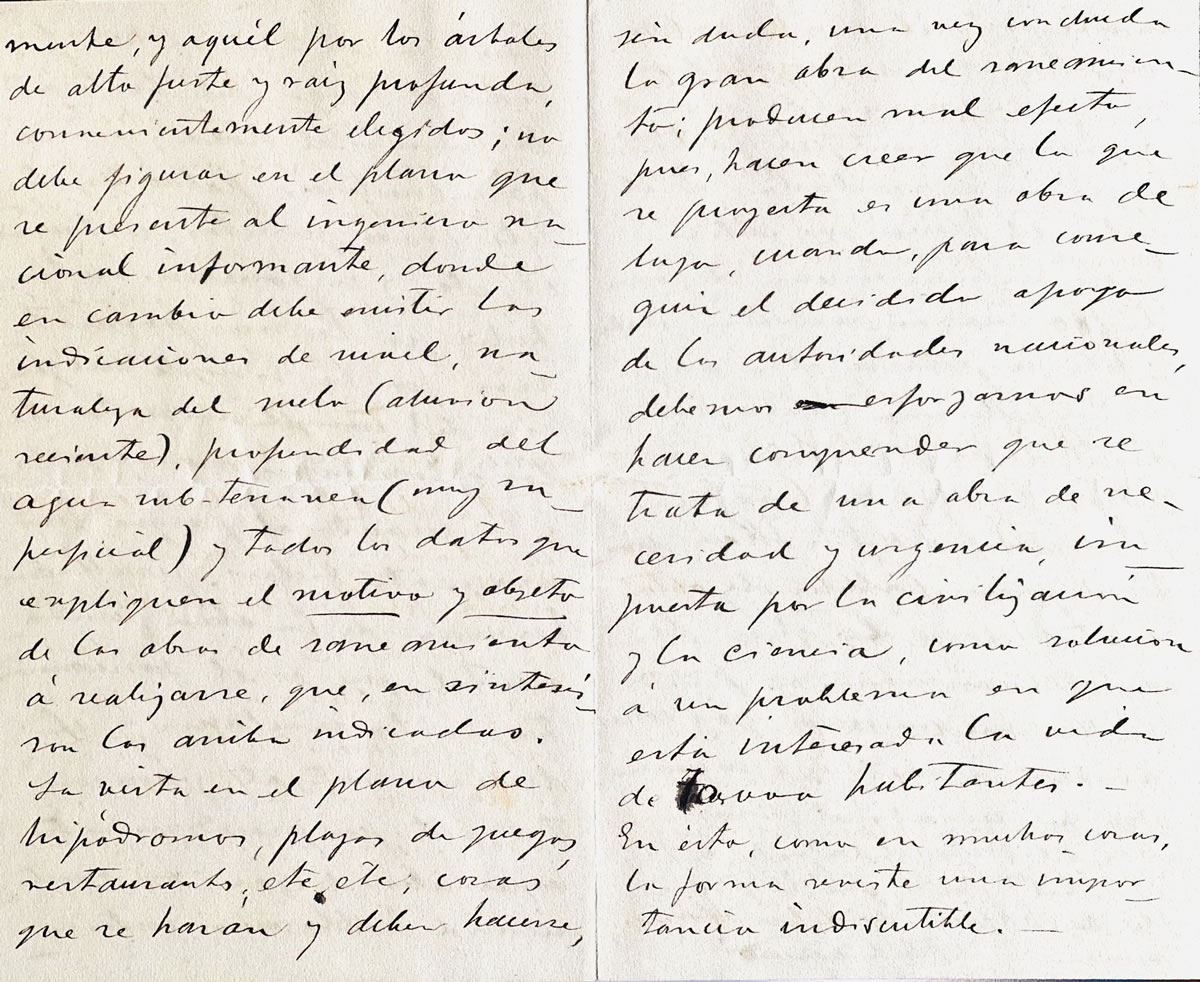 mente, y aquél por los árboles
de alto fuste y raiz profunda,
convenientemente elegidos; no
debe figurar en el plano que
se presente al ingeniero na_
cional informante, donde
en cambio debe emitir las
indicaciones de nivel, na_
turaleza del suelo (aluvion
reciente), profundidad del
agua sub-terranea (muy su_
perficial) y todos los datos que
expliquen el motivo y objeto
de las obras de saneamiento
á realizarse, que, en sintesis_
son las arriba indicadas.
La vista en el plano de
hipódromos, plazas de juegos,
restaurants, etc, etc, cosas
que se harán y deben hacerse,
sin duda, una vez concluida
la gran obra del saneamien_
to; producen mal efecto,
pues, hacen creer que lo que
se proyecta es una obra de
lujo, cuando, para conse_
guir el decidido apoyo
de las autoridades nacionales,
debemos esforzarnos en
hacer comprender que se
trata de una obra de ne_
cesidad y urgencia, im_
puesta por la civilización
y la ciencia, como solucion
á un problema en que
está interesada la vida
de habitantes. _
En ésto, como en muchas cosas,
la forma reviste una impor_
tancia indiscutible. _